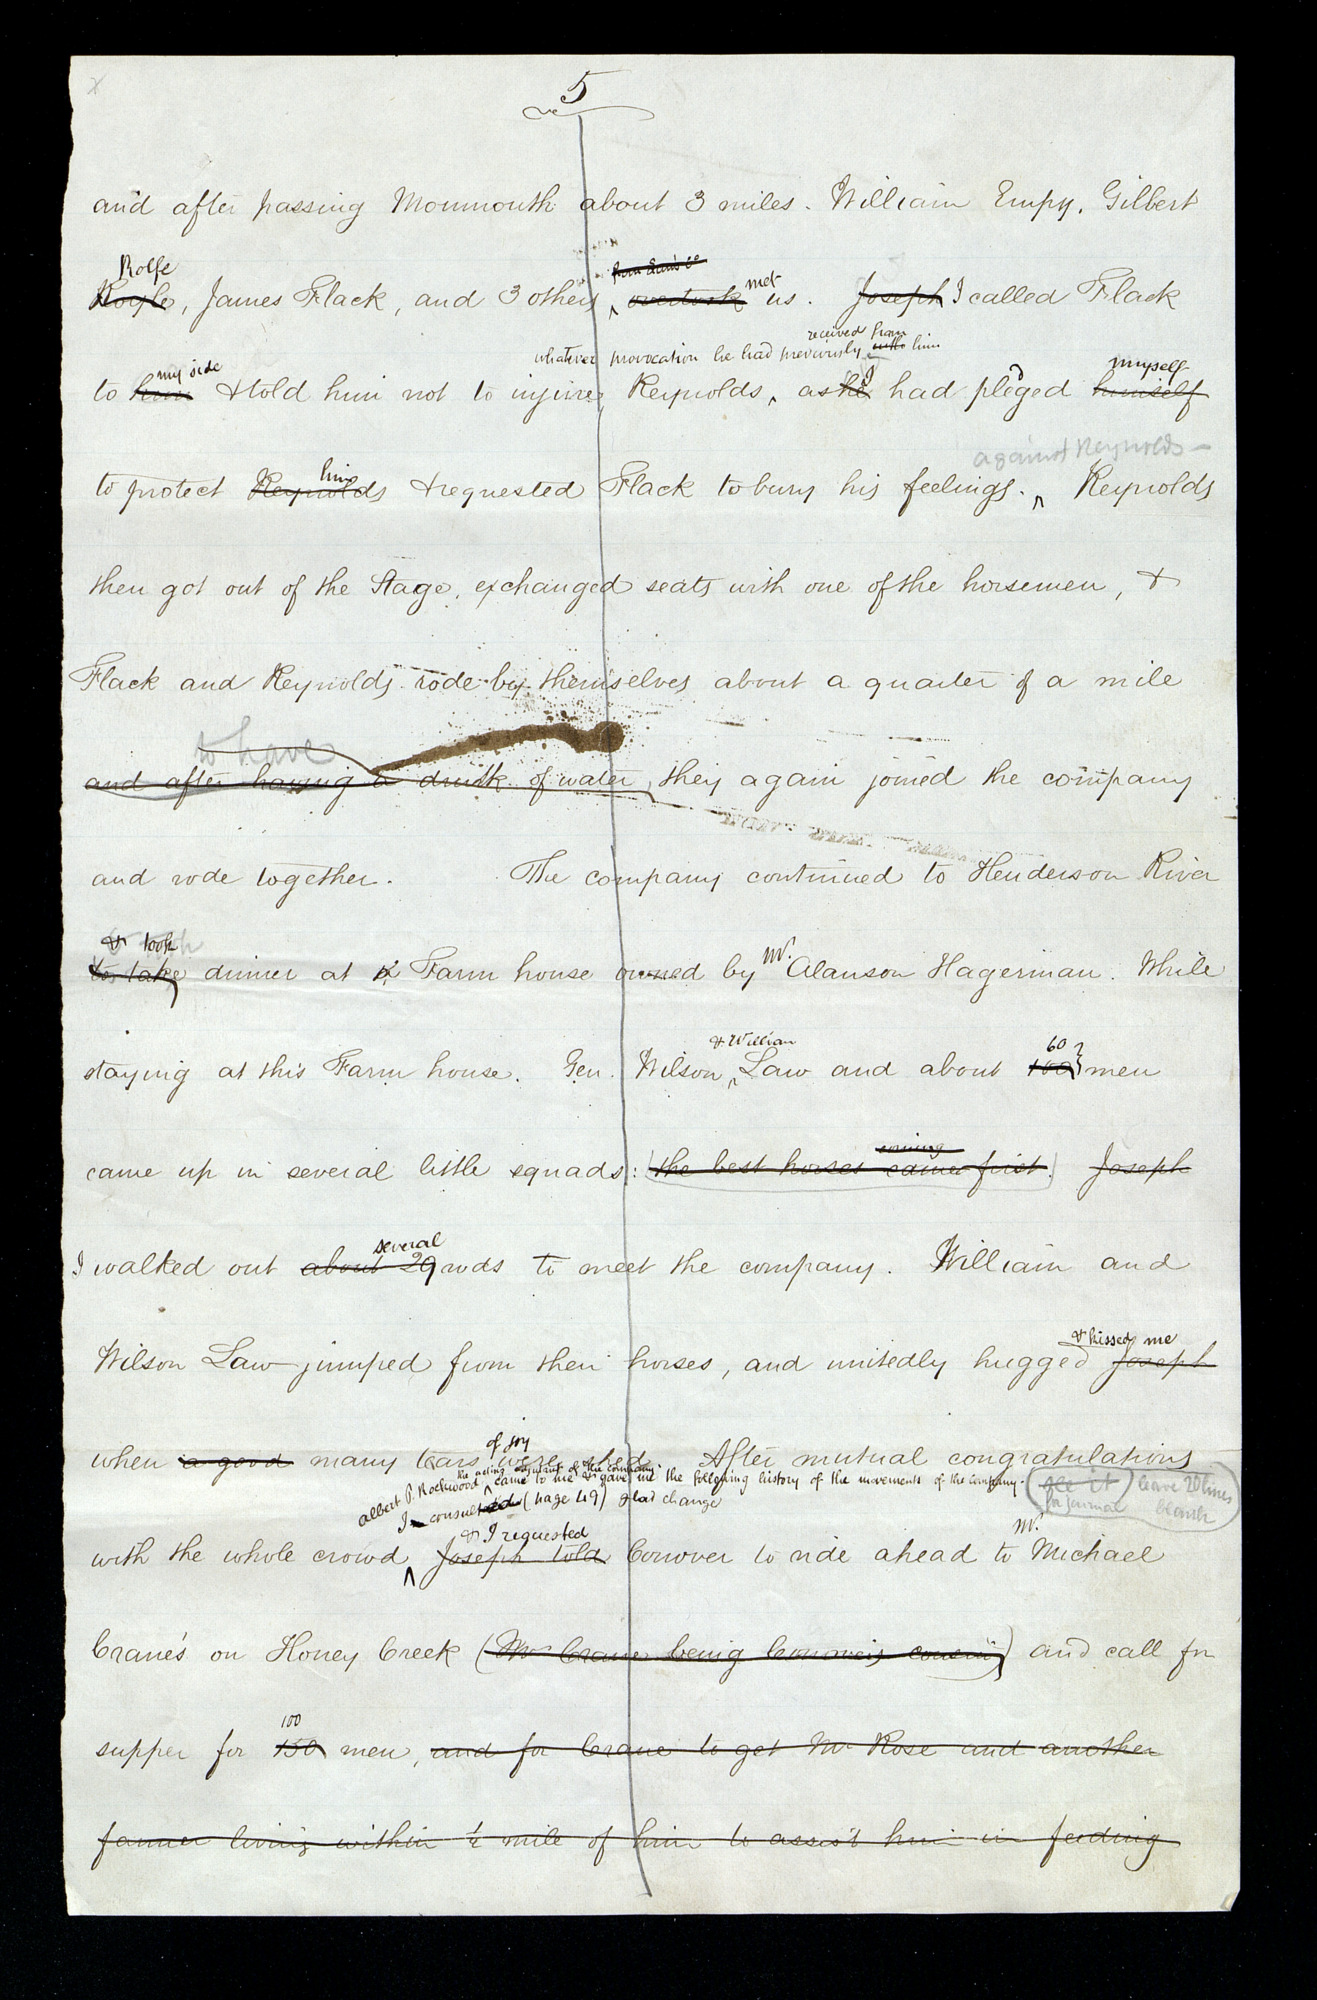 5
and after passing Monmouth about 3 miles. William Empy, Gilbert
Rolfe
from Knox Co
met
Rogle, James Flack, and 3 others ‸ overtook us. Joseph I called Flack
received from
my side
whatever provocation he had previously with him
I
myself
to him & told him not to injure Reynolds‸ as he had pleged himself
against Reynolds —
him
to protect Reynolds & requested Flack to bury his feelings. ‸ Reynolds
then got out of the Stage, exchanged seats with one of the horsemen, &
Flack and Reynolds rode by themselves about a quarter of a mile
to have
and after having a drink of water, they again joined the company
and rode together. The company continued to Henderson River
& took
to take dinner at a Farm house owned by Mr. Alanson Hagerman. While
& William
60
staying at this Farm house. Gen. Wilson‸ Law and about 100 men
coming
came up in several little squads: (the best horses came first.) Joseph
several
I walked out about 20 rods to meet the company. William and
& kissed me
Wilson Law jumped from their horses, and unitedly hugged Joseph
of joy
when a good many tears were shed. After mutual congratulations
the acting adjutant of the company
albert P. Rockwood ‸ came to me & gave me the following history of the movements of the company. (see it for journal) leave 20 lines blank
I consulted (page 49) glad change
& I requested
Mr.
with the whole crowd ‸ Joseph told Conover to ride ahead to Michael
Crane's on Honey Creek (Mr Crane being Conover's cousin) and call for
100
supper for 150 men, and for Crane to get Mr Rose and another
farmer living within ½ mile of him to assist him in feeding